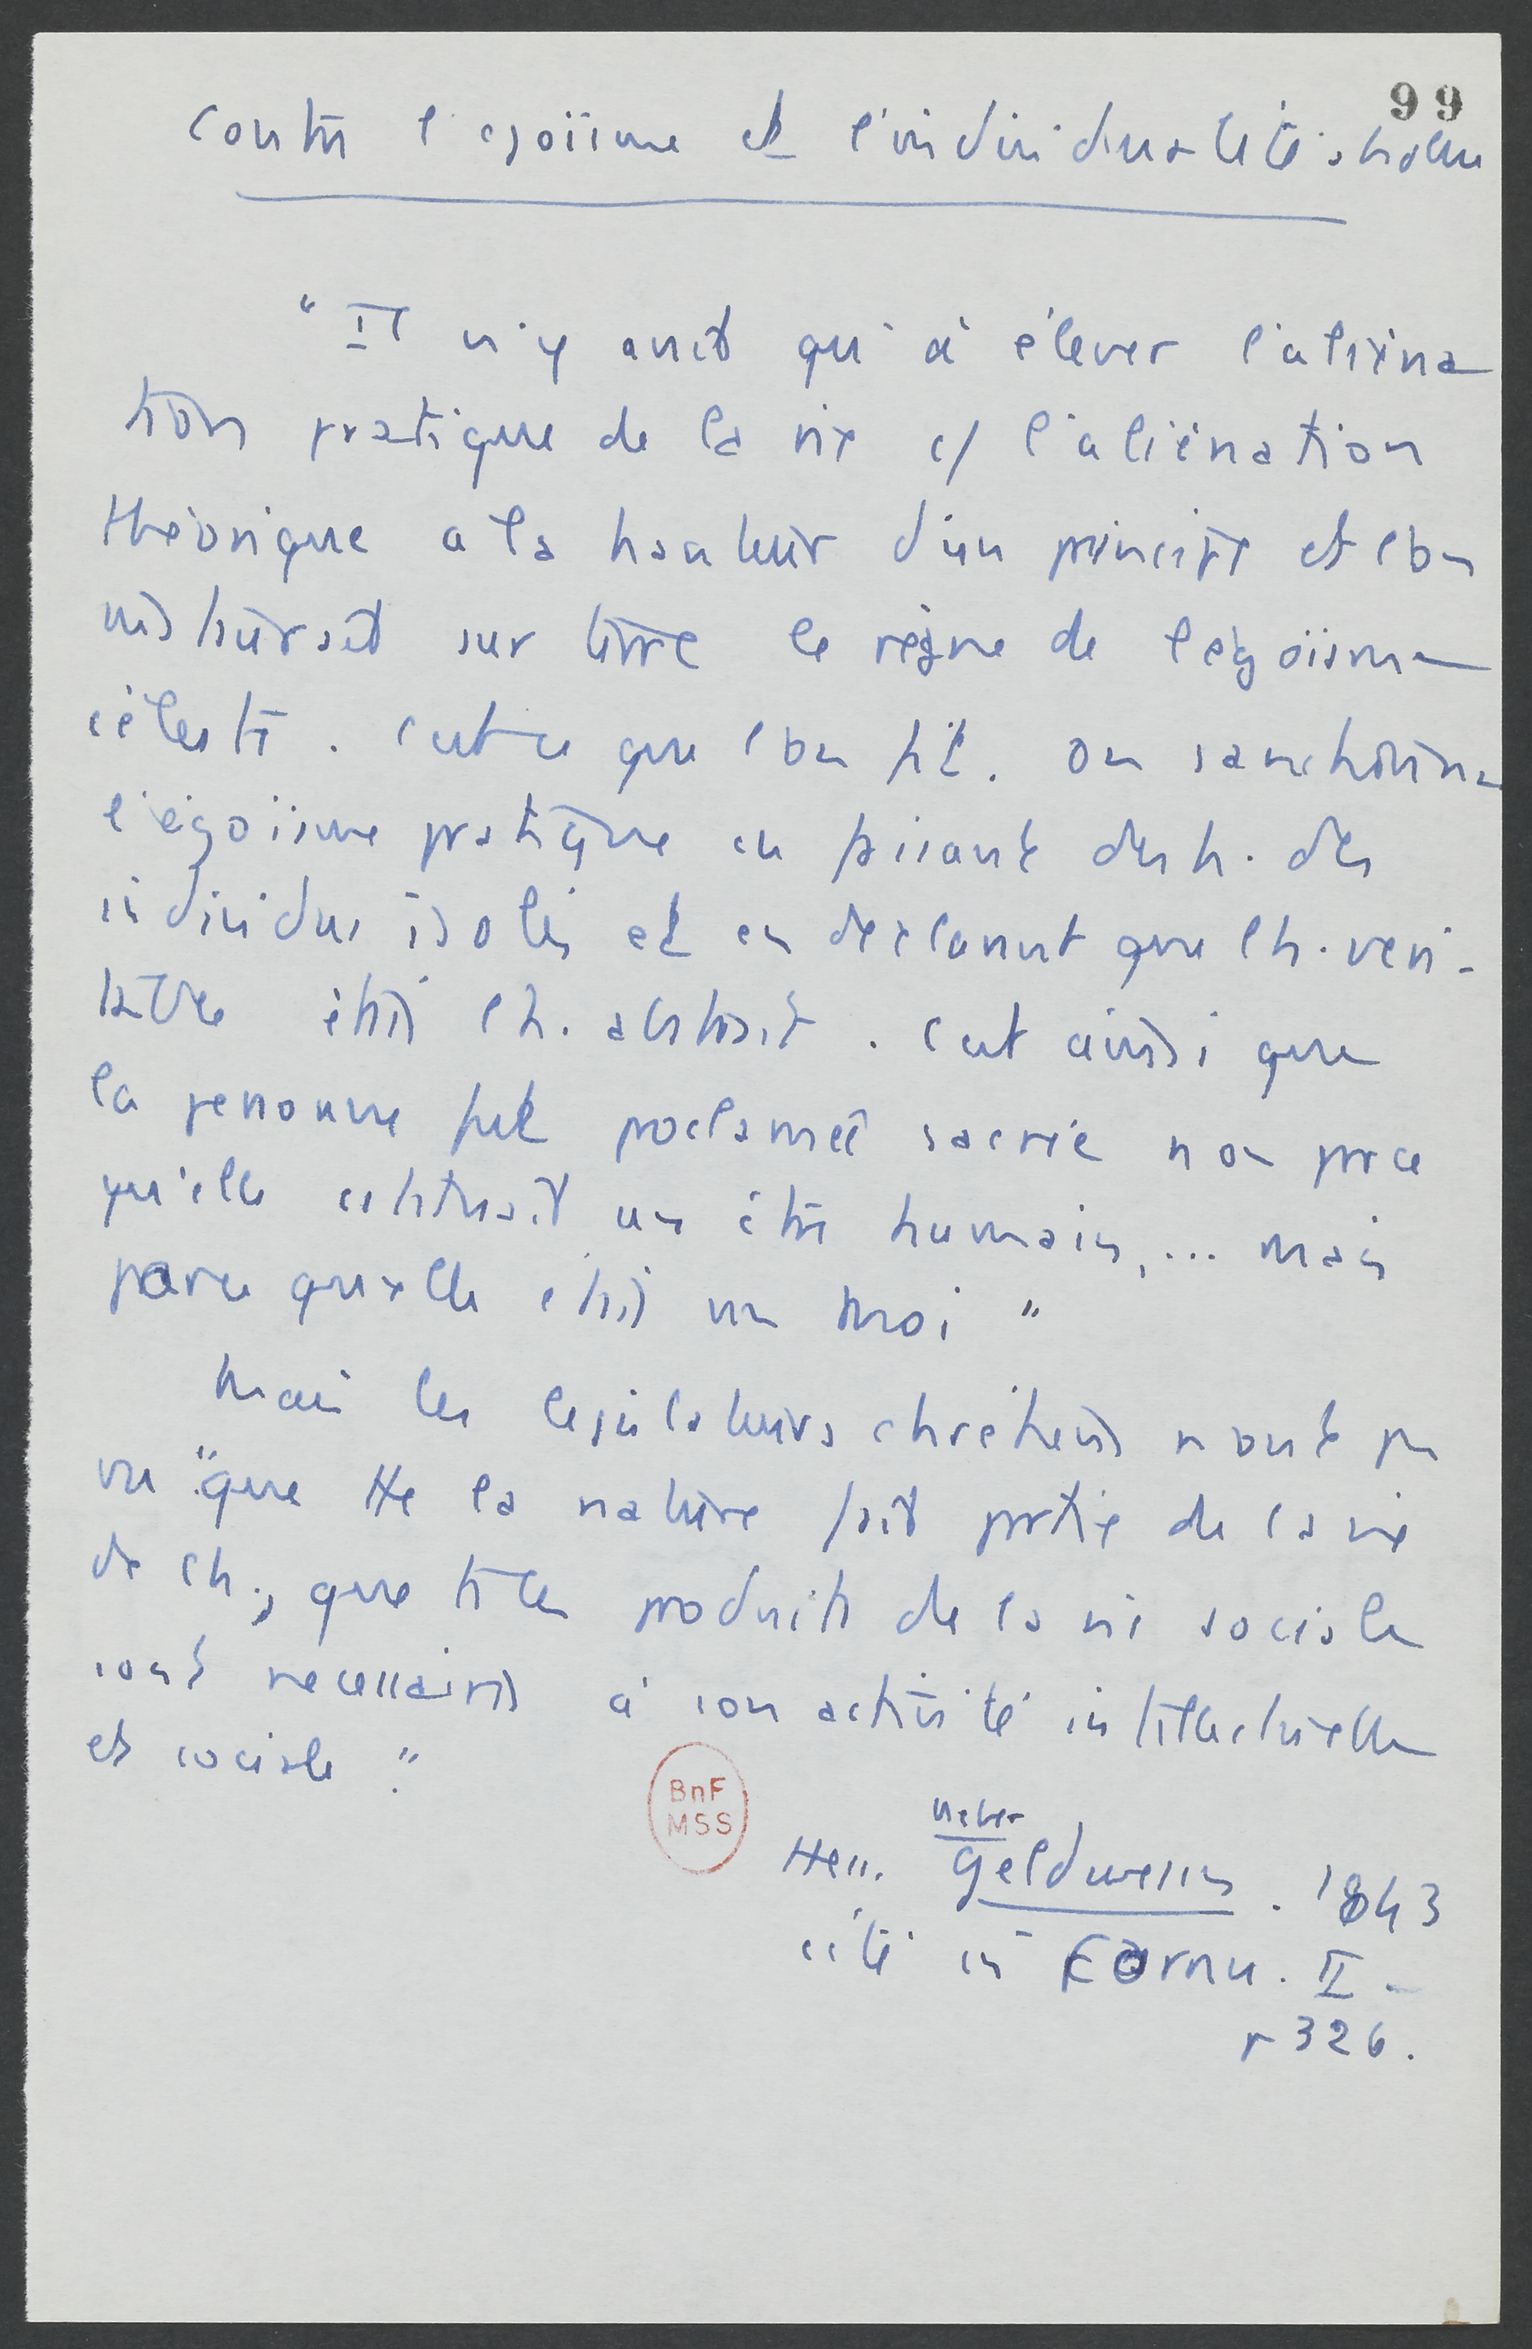 99
Contre l'egoïsme et l'individualité abstraite
"Il n'y avait qu'à élever l'aliéna
tion pratique de la vie c/ l'aliénation
théorique a la hauteur d'un principe et l'on
instaurait sur terre le règne de l'égoïsme
céleste. C'est ce que l'on fit. On sanctionna
l'égoïsme pratique en faisant des h. des
individus isolés et en declarant que l'h. veri-
table était l'h. abstrait. C'est ainsi que
la personne fut proclamée sacrée non parce
qu'elle constituait un être humain, ... mais
parce qu'elle était un moi"
Mais les legislateurs chrétiens n'ont pas
vu "que tte la nature fait partie de la vie
de l'h., que ts les produits de la vie sociale
sont necessaires à son activité intellectuelle
et sociale".
BnF
MSS
Ueber
Hess. Geldwesen. 1843
cité in Cornu. II -
p 326.